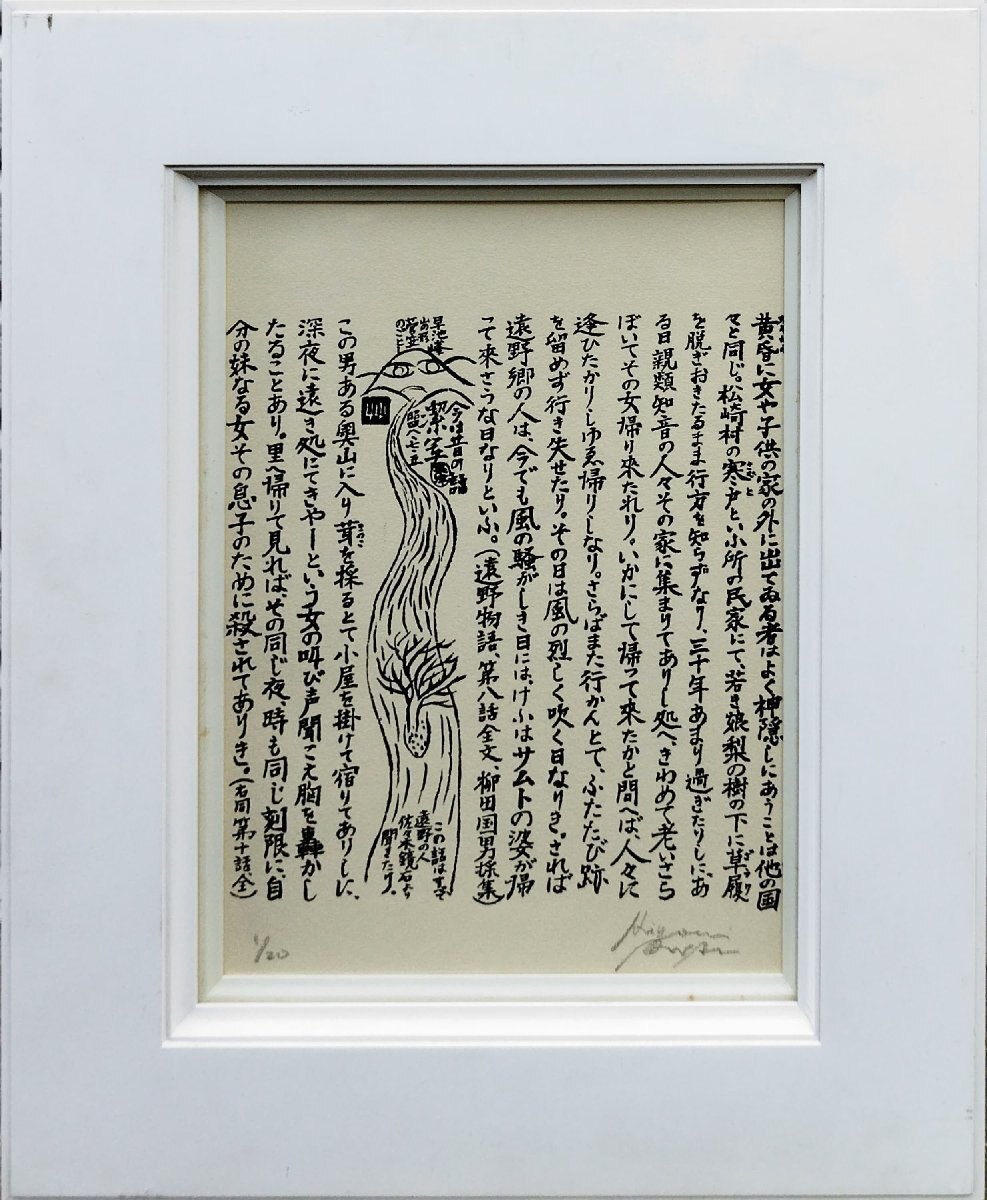 黄昏に女や子供の家の外に出てゐる者はよく神隠しにあうことは他の国
々と同じ。松崎村の寒戸といふ所の民家にて、若き娘梨の樹の下に草履
を脱ぎおきたるまま行方を知らずなり、三十年あまり過ぎたりしに、あ
る日親類知音の人々その家に集まりてありし処へ、きわめて老いさら
ぼいてその女帰り来たれり。いかにして帰って来たかと問へば、人々に
逢ひたかりしゆゑ帰りしなり。さらばまた行かんとて、ふたたび跡
を留めず行き失せたり。その日は風の烈しく吹く日なりき。されば
遠野郷の人は、今でも風の騒がしき日には、けふはサムトの婆が帰
って来さうな日なりといふ。(遠野物語、第八話全文、柳田国男採集)
今は昔の話
潔写
早池峰
この話はすべて
遠野の人
佐々木鏡石より
聞きたり。
この男ある奥山に入り茸を採るとて小屋を掛けて宿りてありしに、
深夜に遠き処にてきやーという女の叫び声聞こえ胸を轟かし
たることあり。里へ帰りて見れば、その同じ夜、時も同じ刻限に、自
分の妹なる女その息子のために殺されてありき。(右同第十話全)
1/20